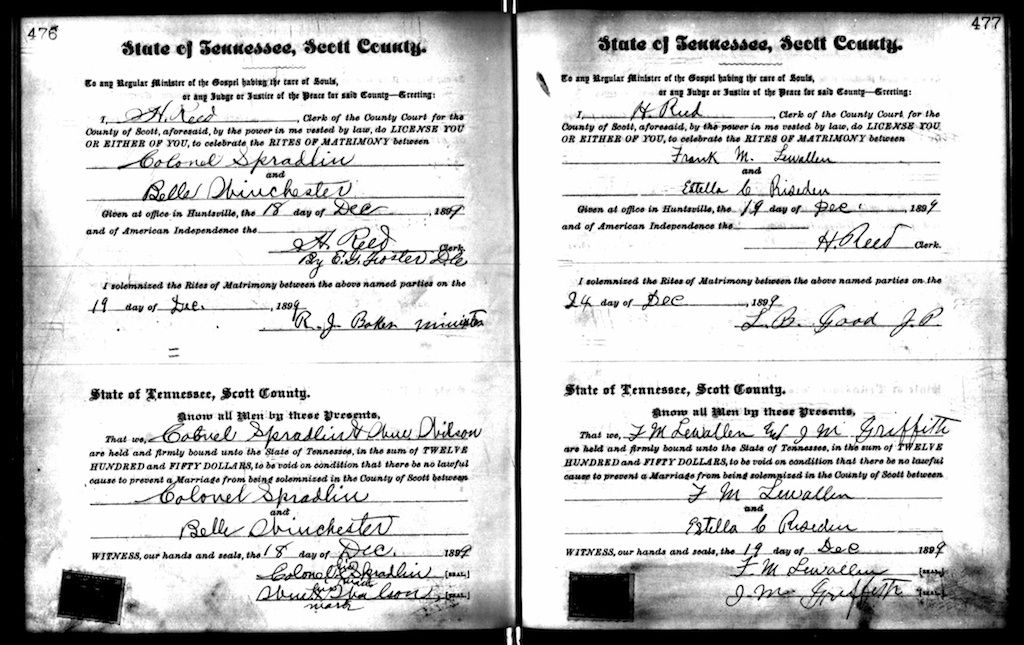 476
State of Tennessee, Scott County.
To any Regular Minister of the Gospel having the care of Souls,
or any Judge or Justice of the Peace for said County—Greeting:
I, H. Reed, Clerk of the County Court for the
County of Scott, aforesaid, by the power in me vested by law, do LICENSE YOU
OR EITHER OF YOU, to celebrate the RITES OF MATRIMONY between
Colonel Spradlin
and
Belle Winchester
Given at office in Huntsville, the 18 day of Dec, 1899
and of American Independence the
H. Reed Clerk.
By E. G. Foster D.C.
I solemnized the Rites of Matrimony between the above named parties on the
19 day of Dec., 1899
R. J. Baker minister
State of Tennessee, Scott County.
Know all Men by these Presents,
That we, Colonel Spradlin & Wilson
are held and firmly bound unto the State of Tennessee, in the sum of TWELVE
HUNDRED and FIFTY DOLLARS, to be void on condition that there be no lawful
cause to prevent a Marriage from being solemnized in the County of Scott between
Colonel Spradlin
and
Belle Winchester
WITNESS, our hands and seals, the 18 day of Dec. 1899
Colonel his Spradlin [SEAL]
mark
[SEAL]
mark
477
State of Tennessee, Scott County.
To any Regular Minister of the Gospel having the care of Souls,
or any Judge or Justice of the Peace for said County—Greeting:
I, H. Reed, Clerk of the County Court for the
County of Scott, aforesaid, by the power in me vested by law, do LICENSE YOU
OR EITHER OF YOU, to celebrate the RITES OF MATRIMONY between
Frank M. Lewallen
and
Estella C Riseden
Given at office in Huntsville, the 19 day of Dec., 1899
and of American Independence the
H Reed Clerk.
I solemnized the Rites of Matrimony between the above named parties on the
24 day of Dec, 1899
L. B. Good J.P.
State of Tennessee, Scott County.
Know all Men by these Presents,
That we, F M Lewallen J M Griffith
are held and firmly bound unto the State of Tennessee, in the sum of TWELVE
HUNDRED and FIFTY DOLLARS, to be void on condition that there be no lawful
cause to prevent a Marriage from being solemnized in the County of Scott between
F M Lewallen
and
Estella C Riseden
WITNESS, our hands and seals, the 19 day of Dec 1899
F M Lewallen [SEAL]
J. M. Griffith [SEAL]